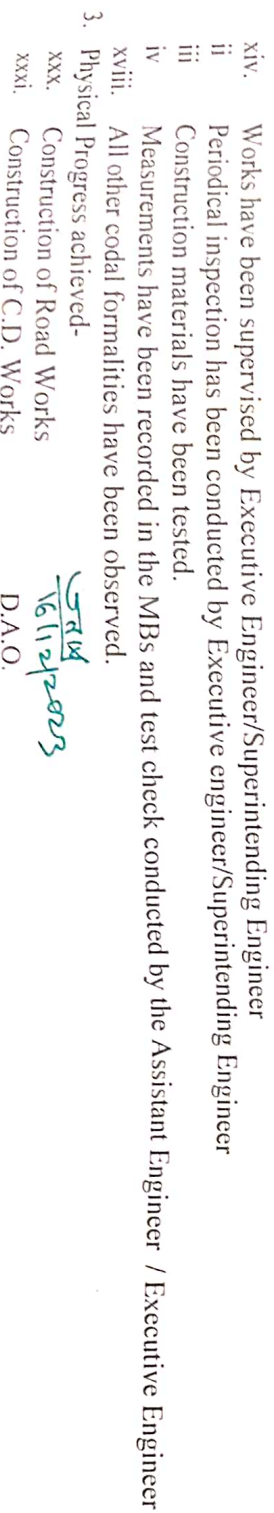 xiv. Works have been supervised by Executive Engineer/Superintending Engineer
ii Periodical inspection has been conducted by Executive engineer/Superintending Engineer
iii Construction materials have been tested.
iv Measurements have been recorded in the MBs and test check conducted by the Assistant Engineer / Executive Engineer
xviii. All other codal formalities have been observed.
3. Physical Progress achieved-
xxx. Construction of Road Works
16/12/2023
xxxi. Construction of C.D. Works D.A.O.